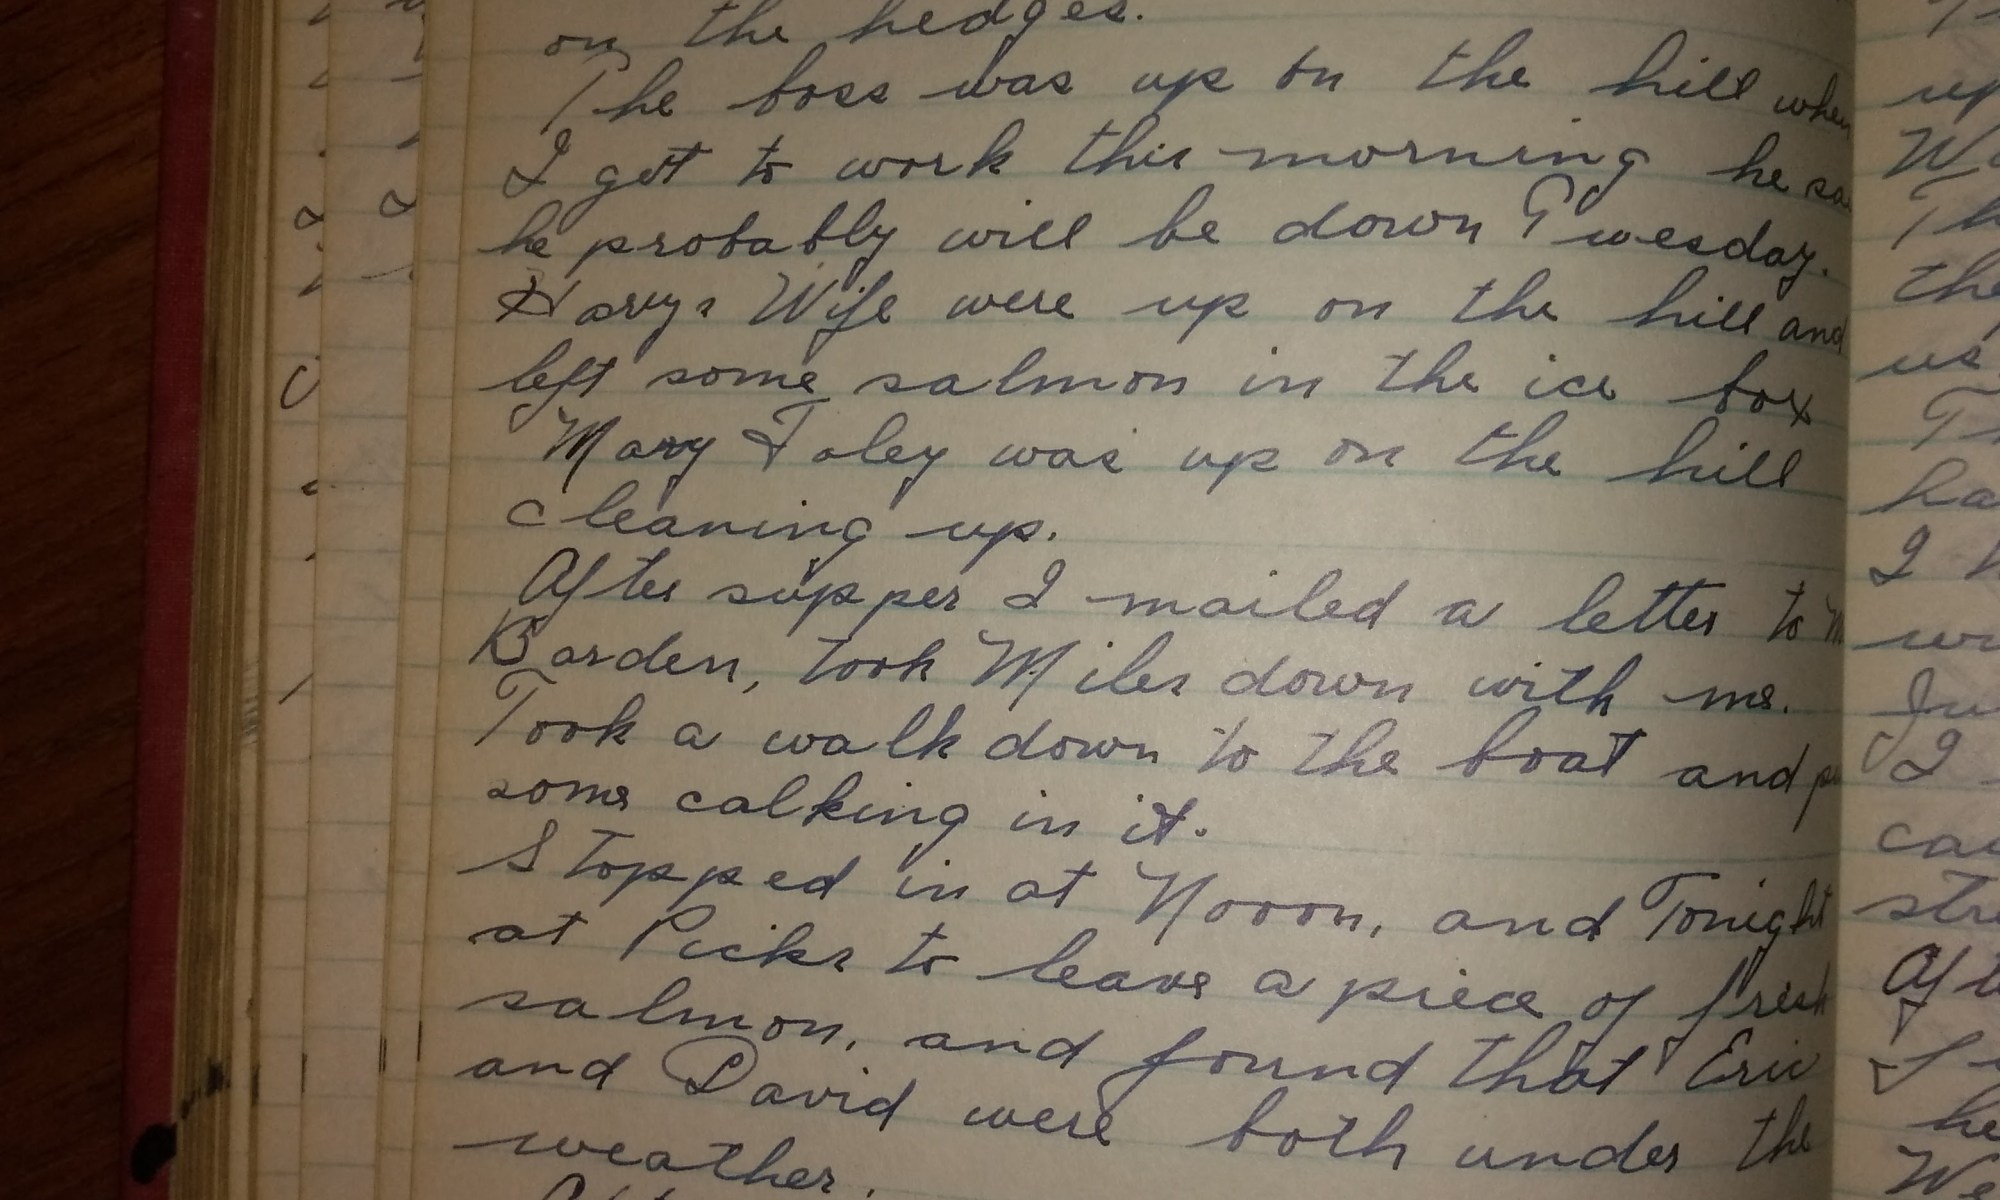 on the hedges.
The boss was up on the hill when
I got to work this morning he
he probably will be down Tuesday.
Harys Wife were up on the hill and
left some salmon in the ice box
Mary Foley was up on the hill
cleaning up.
After supper I mailed a letter to
Barden, took Miles down with me.
Took a walk down to the boat and
some calking in it.
Stopped in at Nooon, and Tonight
at Picks to leave a piece of fresh
salmon, and found that Eric
and David were both under the
weather.